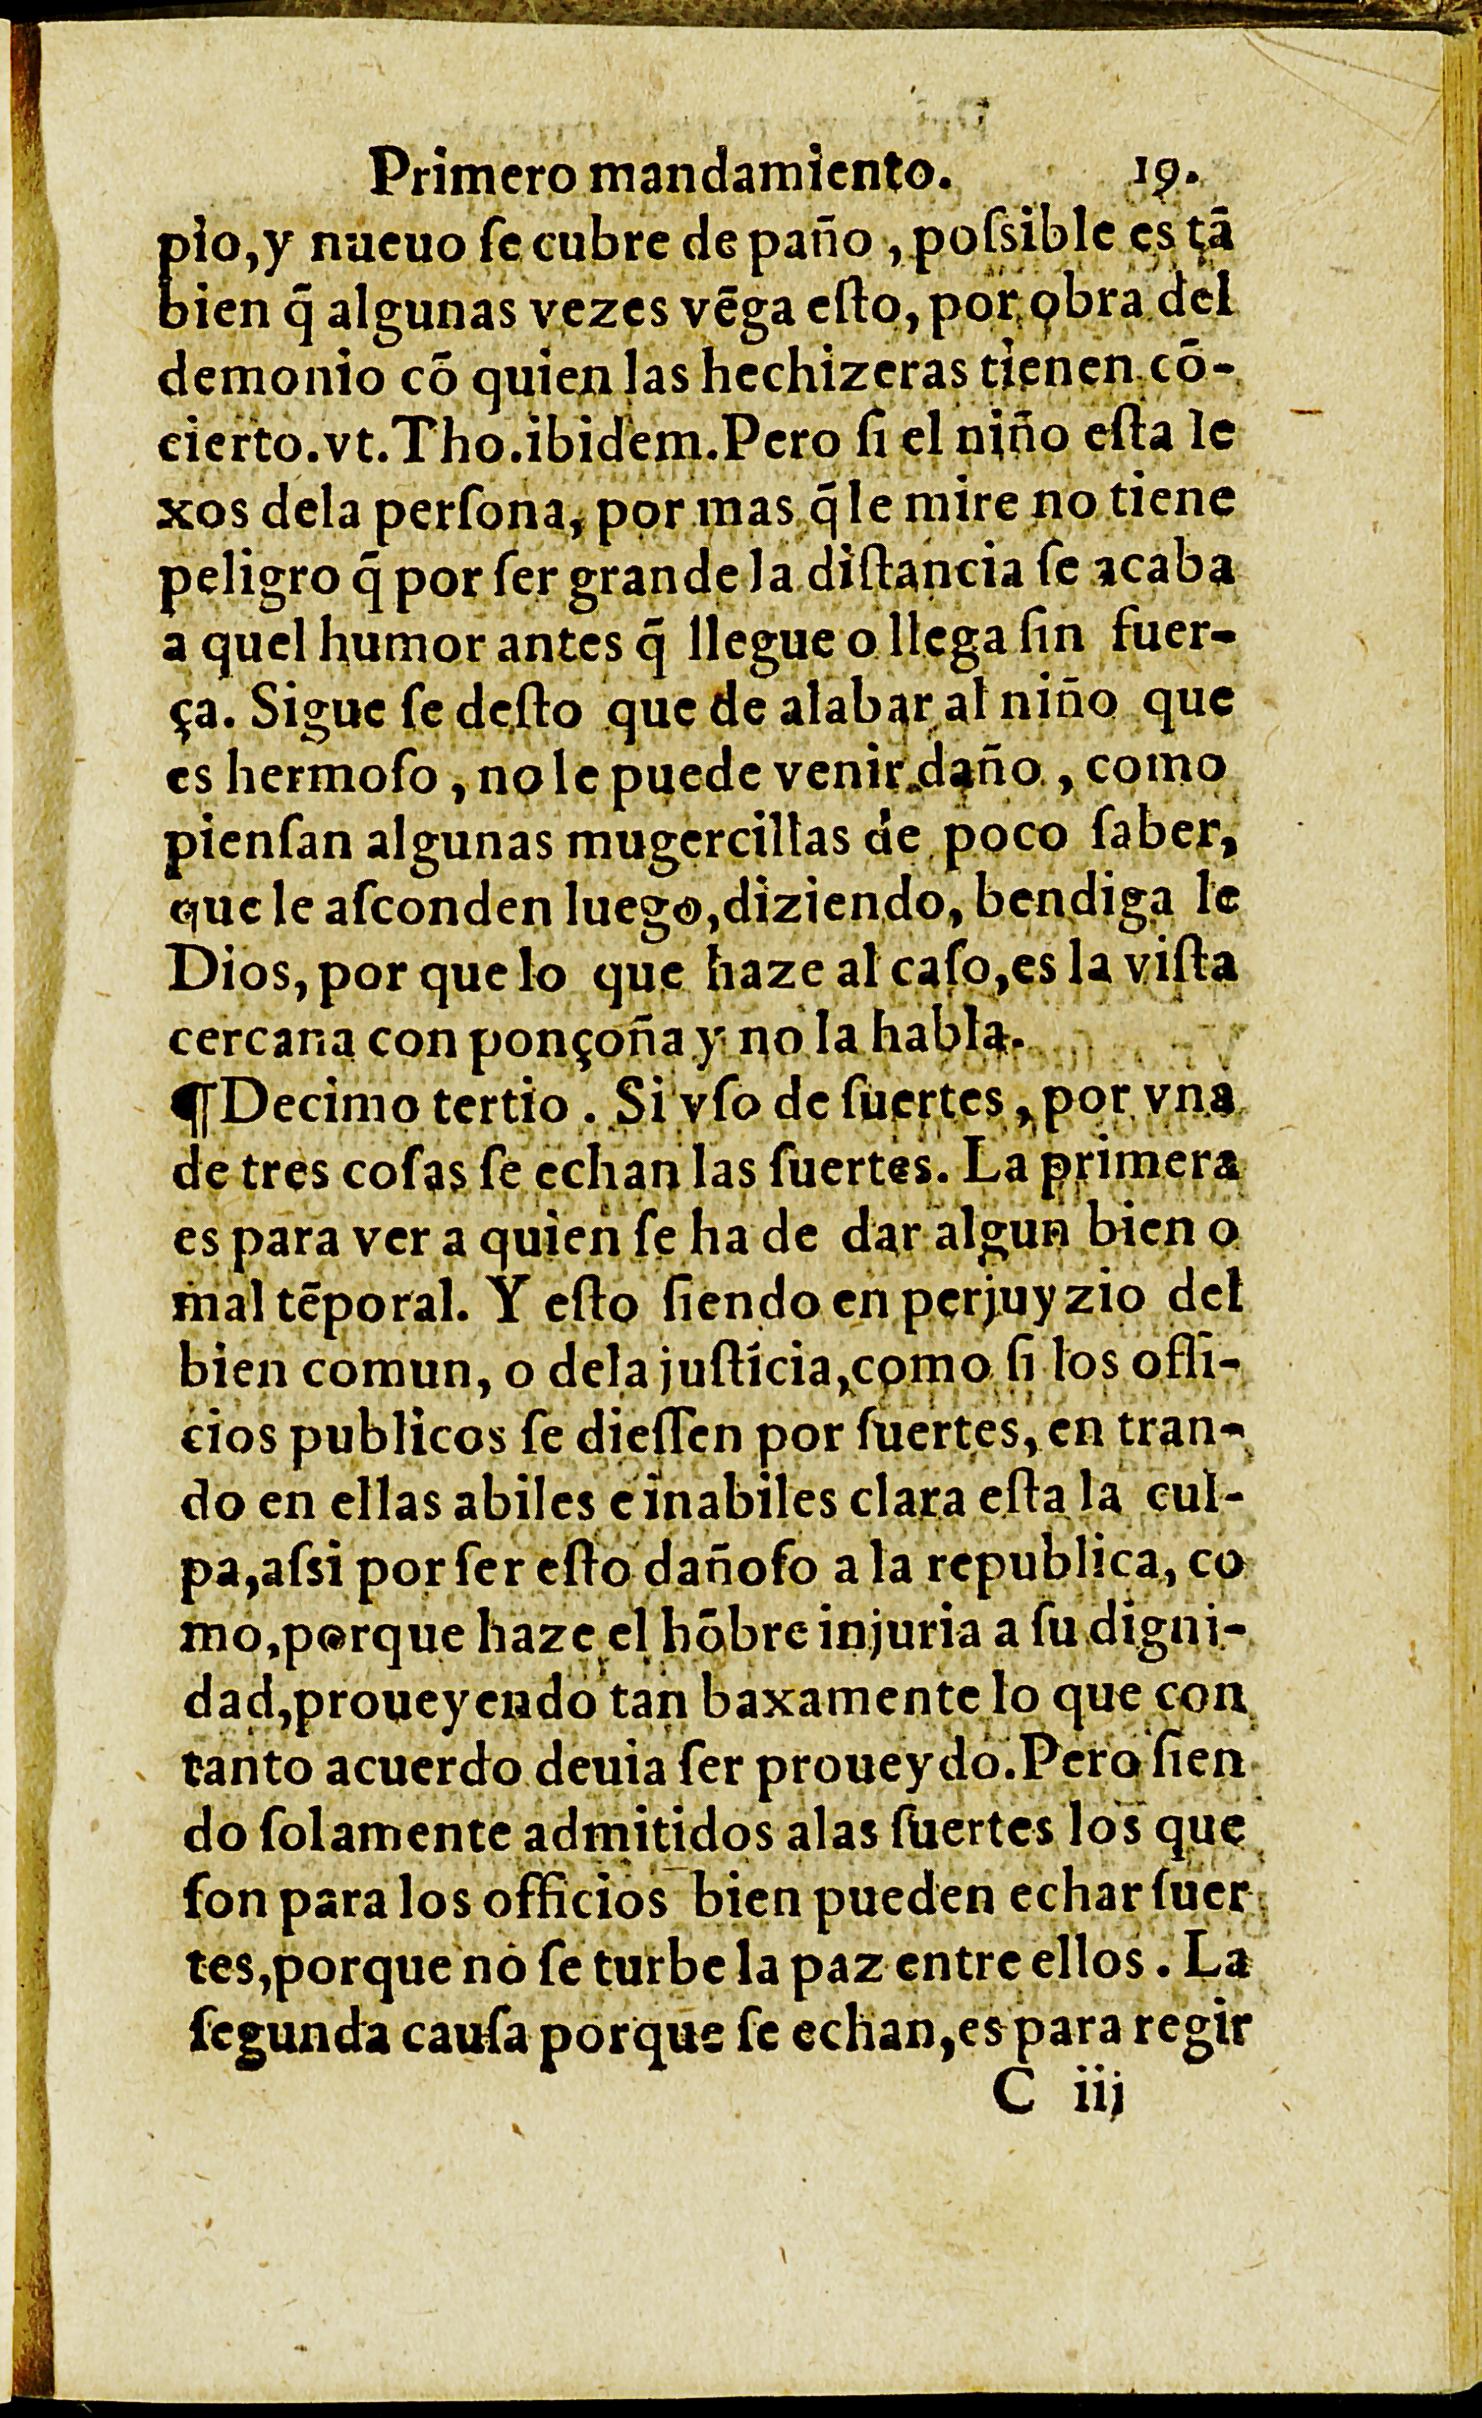 Primero mandamiento. 19.
pio,y nueuo ſe cubre de paño , poſsible es tā
bien q̄ algunas vezes vēga eſto, por obra del
demonio cō quien las hechizeras tienen cō-
cierto.vt.Tho.ibidem.Pero ſi el niño eſta le
xos dela perſona, por mas q̄ le mire no tiene
peligro q̄ por ſer grande la diſtancia ſe acaba
a quel humor antes q̄ llegue o llega ſin fuer-
ça. Sigue ſe deſto que de alabar al niño que
es hermoſo , no le puede venir daño , como
pienſan algunas mugercillas de poco ſaber,
que le aſconden luego,diziendo, bendiga le
Dios, por que lo que haze al caſo,es la viſta
cercana con ponçoña y no la habla.
¶Decimo tertio . Si vſo de ſuertes , por vna
de tres coſas ſe echan las ſuertes. La primera
es para ver a quien ſe ha de dar algun bien o
mal tēporal. Y eſto ſiendo en perjuyzio del
bien comun, o dela juſticia,como ſi los offi-
cios publicos ſe dieſſen por ſuertes, en tran-
do en ellas abiles e inabiles clara eſta la cul-
pa,aſsi por ſer eſto dañoſo a la republica, co
mo,porque haze el hōbre injuria a ſu digni-
dad,proueyendo tan baxamente lo que con
tanto acuerdo deuia ſer proueydo.Pero ſien
do ſolamente admitidos alas ſuertes los que
ſon para los officios bien pueden echar ſuer
tes,porque no ſe turbe la paz entre ellos . La
ſegunda cauſa porque ſe echan,es para regir
C iij